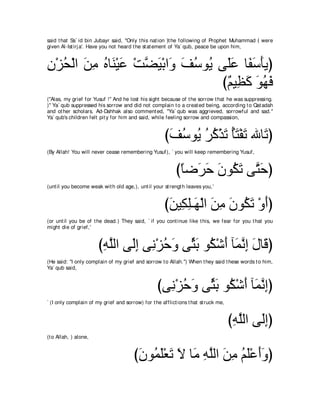 said that Sa`id bin Jubayr said, "Only this nation [the following of Prophet Muhammad ] were
given Al-Istirja'. Have you not heard the statement of Ya`qub, peace be upon him,
(يأَسَفَا عَلَى يُوسُفَ وَابْيَضَّتْ عَيْنَاهُ مِنَ الْحُزْنِ
فَهُوَ كَظِيمٌ)
("Alas, my grief for Yusuf !" And he lost his sight because of the sorrow that he was suppressing.
)'' Ya`qub suppressed his sorrow and did not complain to a created being, according to Qatadah
and other scholars. Ad-Dahhak also commented, "Ya`qub was aggrieved, sorrowful and sad.''
Ya`qub's children felt pity for him and said, while feeling sorrow and compassion,
(تَاللهِ تَفْتَأُ تَذْكُرُ يُوسُفَ)
(By Allah! You will never cease remembering Yusuf), ` you will keep remembering Yusuf,
(حَتَّى تَكُونَ حَرَضاً)
(until you become weak with old age,), until your strength leaves you,'
(أَوْ تَكُونَ مِنَ الْهَـلِكِينَ)
(or until you be of the dead.) They said, ` if you continue like this, we fear for you that you
might die of grief,'
(قَالَ إِنَّمَآ أَشْكُو بَثِّى وَحُزْنِى إِلَى اللَّهِ)
(He said: "I only complain of my grief and sorrow to Allah.") When they said these words to him,
Ya`qub said,
(إِنَّمَآ أَشْكُو بَثِّى وَحُزْنِى)
` (I only complain of my grief and sorrow) for the afflictions that struck me,
(إِلَى اللَّهِ)
(to Allah, ) alone,
(وَأَعْلَمُ مِنَ اللَّهِ مَا لاَ تَعْلَمُونَ)